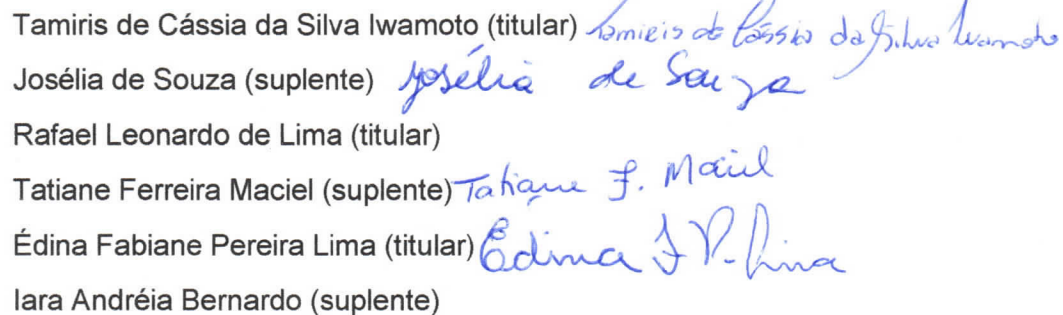 Tamiris de Cássia da Silva Iwamoto (titular) Tamieis de Cássia da Silva Iwamoto
Josélia de Souza (suplente) Josélia de Souza
Rafael Leonardo de Lima (titular)
Tatiane Ferreira Maciel (suplente) Tatiane F. Maciel
Édina Fabiane Pereira Lima (titular) Édina F P. Lima
Iara Andréia Bernardo (suplente)